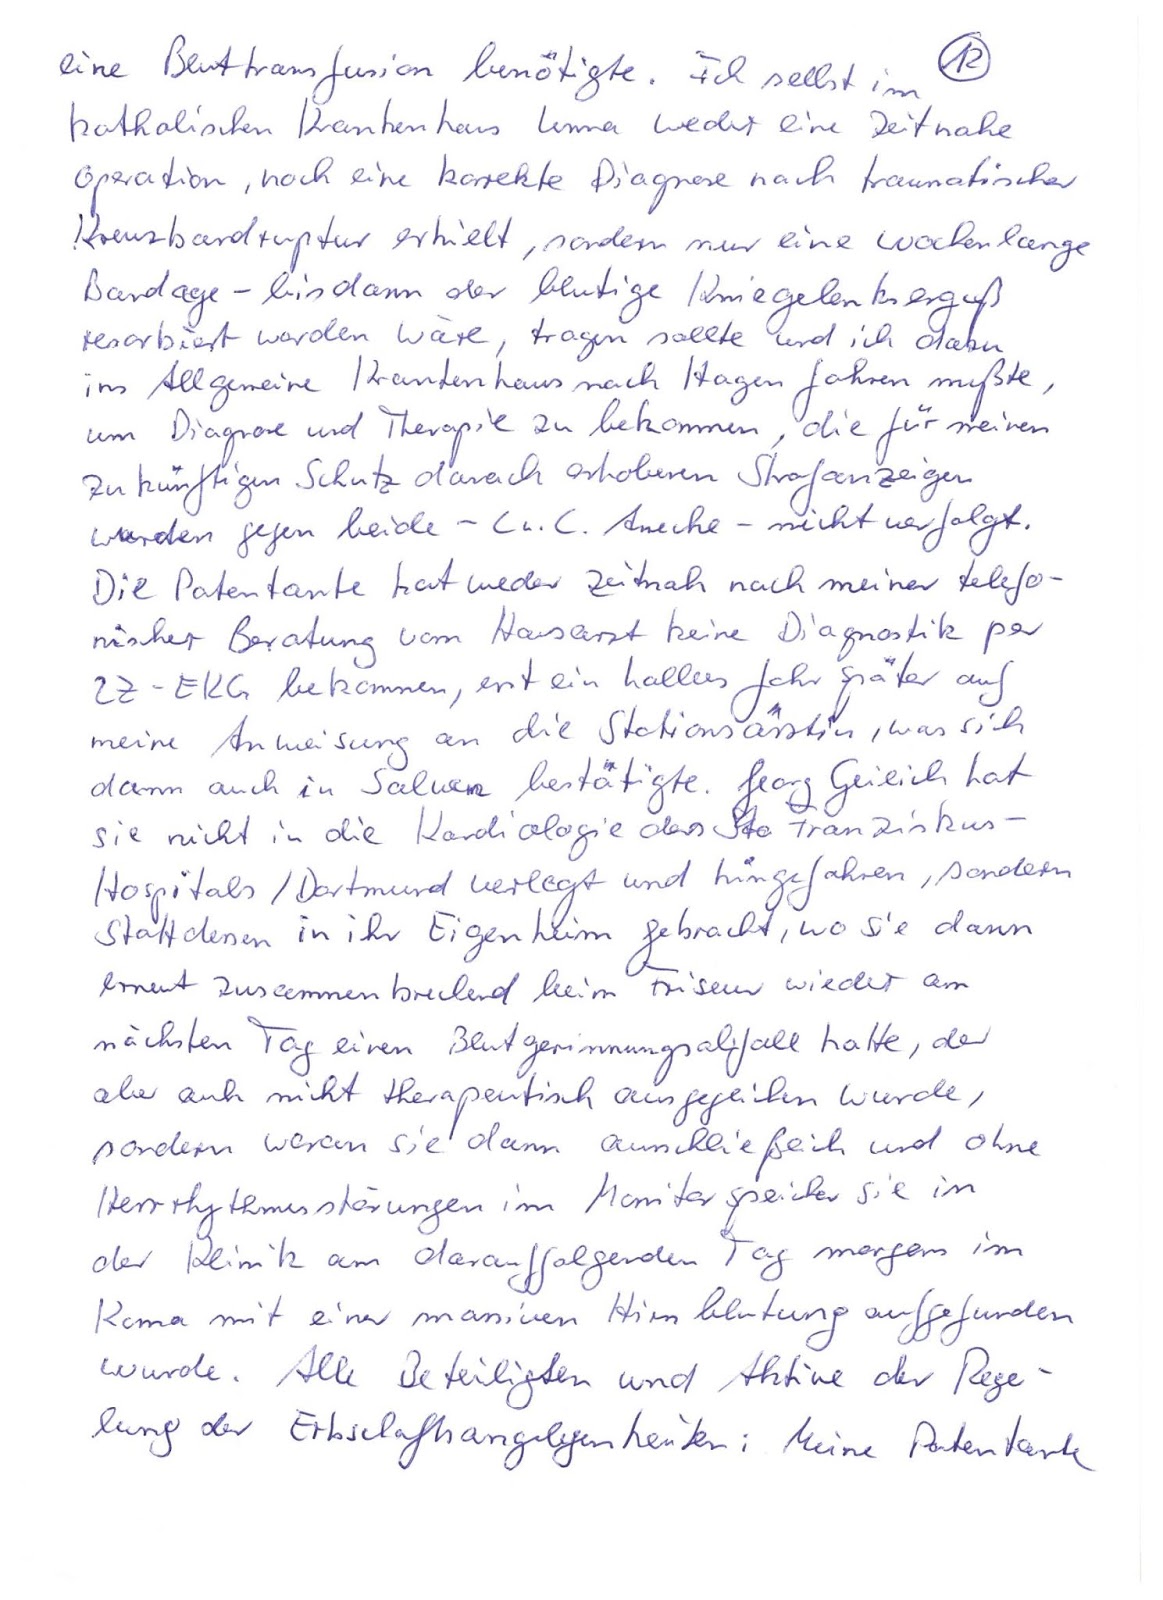 eine Bluttransfusion benötigte. Ich selbst im 12
katholischen Krankenhaus Unna weder eine zeitnahe
Operation, noch eine korrekte Diagnose nach traumatischer
Kreuzbandruptur erhielt, sondern nur eine wochenlange
Bandage - bis dann der blutige Kniegelenkserguß
resorbiert worden wäre, tragen sollte und ich dazu
ins Allgemeine Krankenhaus nach Hagen fahren mußte,
um Diagnose und Therapie zu bekommen, die für meinen
zukünftigen Schutz danach erhobenen Strafanzeigen
wurden gegen beide - C u. C. - nicht verfolgt.
Die Patentante hat weder zeitnah nach meiner telefo-
nischer Beratung vom Hausarzt keine Diagnostik per
LZ-EKG bekommen, erst ein halbes Jahr später auf
meine Anweisung an die Stationsärztin, was sich
dann auch in Salven bestätigte. Georg hat
sie nicht in die Kardiologie des Franziskus-
Hospitals / Dortmund verlegt und hingefahren, sondern
stattdessen in ihr Eigenheim gebracht, wo sie dann
erneut zusammenbrechend beim Friseur wieder am
nächsten Tag einen Blutgerinnungsabfall hatte, der
aber auch nicht therapeutisch ausgeglichen wurde,
sondern woran sie dann und ohne
Herrhythmusstörungen im Monitorspeicher sie in
der Klinik am darauffolgenden Tag morgens im
Koma mit einer massiven Hirnblutung aufgefunden
wurde. Alle Beteiligten und Aktive der Rege-
lung der Erbschaftsangelegenheiten: Meine Patentante